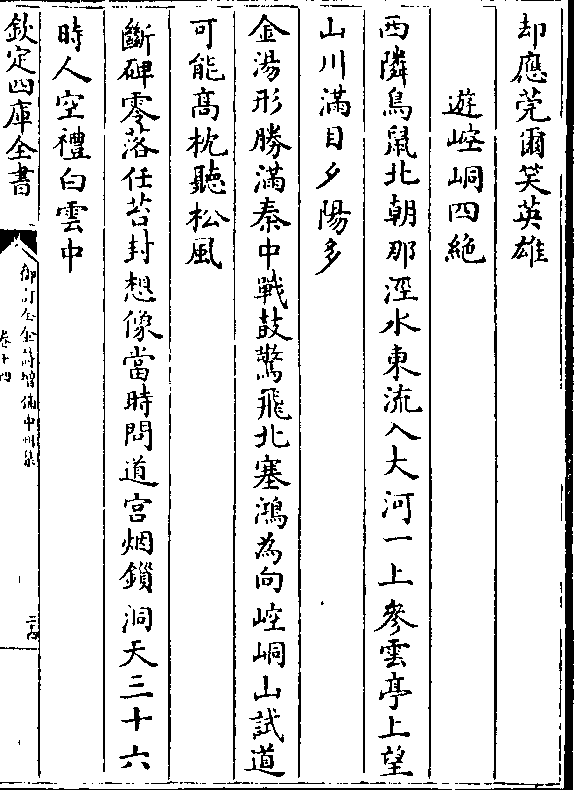 却應莞爾笑英雄
遊崆峒四絶
西隣鳥鼠北朝那涇水東流入大河一上參雲亭上望
山川滿目夕陽多
金湯形勝滿秦中戰鼓驚飛北塞鴻為向崆峒山試道
可能髙枕聽松風
斷碑零落任苔封想像當時問道宫烟鎖洞天三十六
時人空禮白雲中
欽定四庫全書
御訂全金詩増補中州集
卷十四